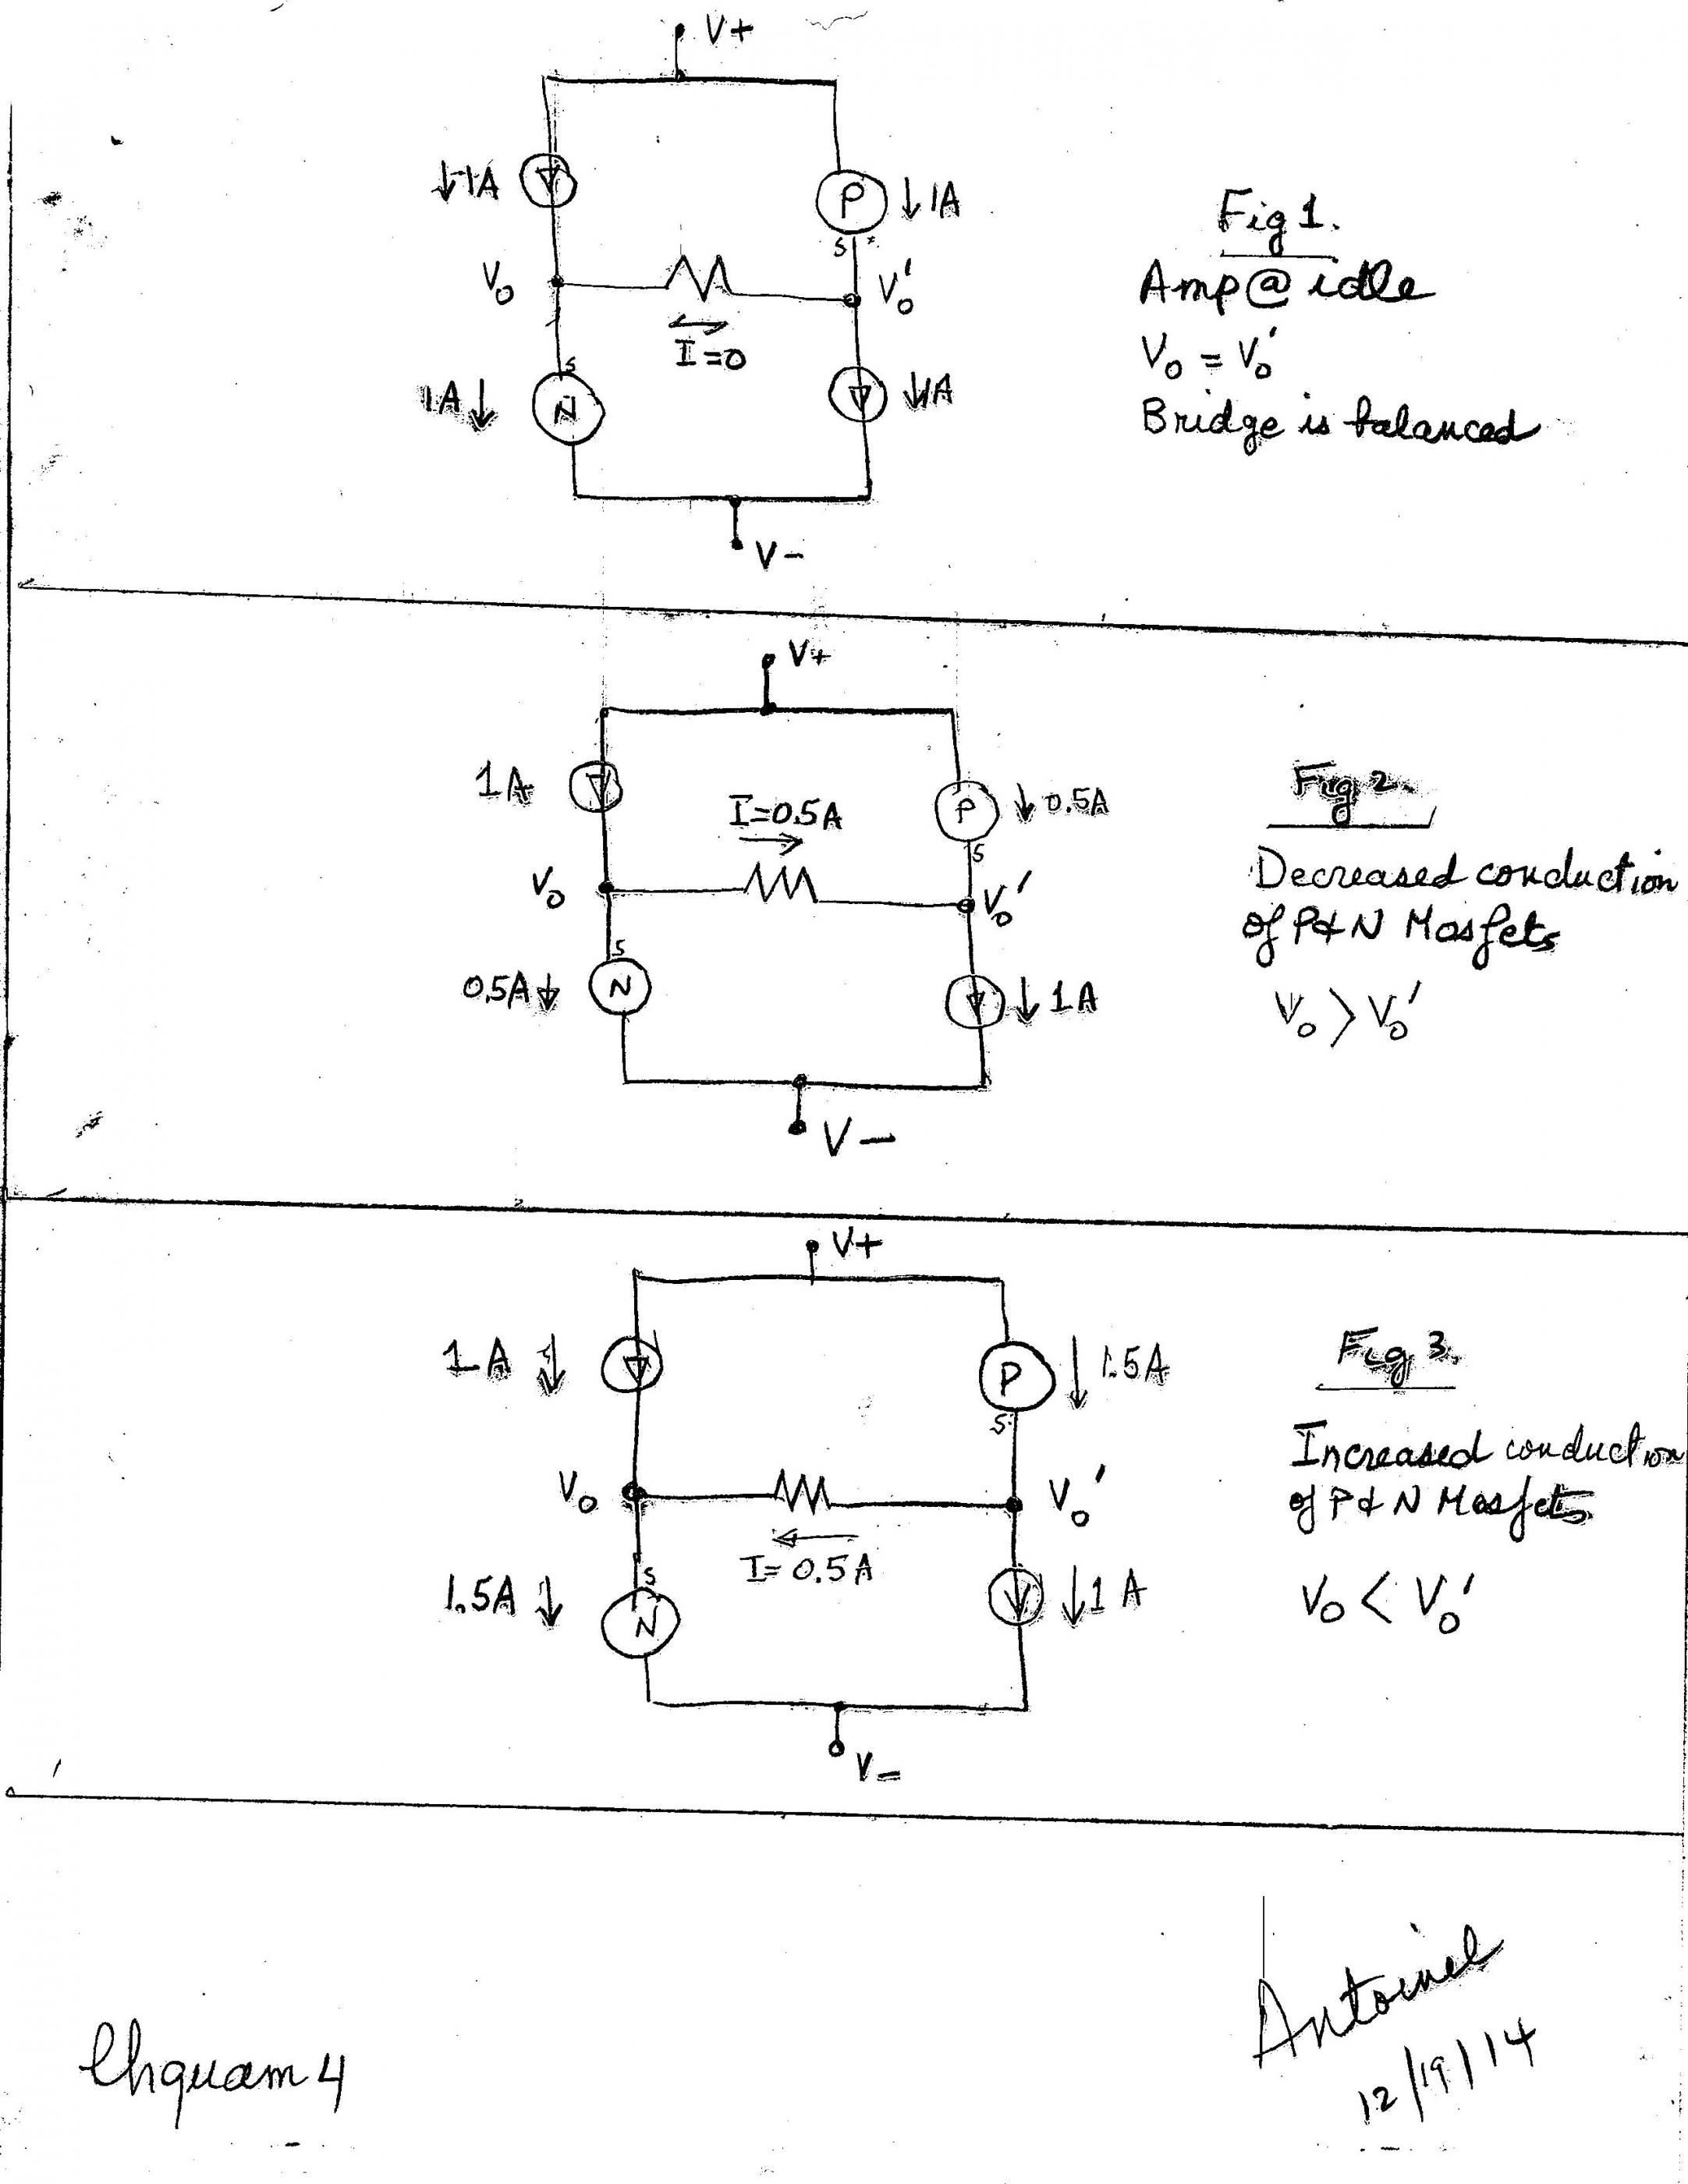 V+
↓1A
P
↓1A
S
V₀
V₀'
I=0
S
1A↓
N
↓1A
V-
Fig 1.
Amp @ idle
V₀ = V₀'
Bridge is balanced
V+
1A
P
↓0.5A
I=0.5A
S
V₀
V₀'
S
0.5A↓
N
↓1A
V-
Fig 2.
Decreased conduction
of P & N Mosfets
V₀ > V₀'
V+
1A↓
P
↓1.5A
S
V₀
V₀'
I=0.5A
S
1.5A↓
N
↓1A
V-
Fig 3.
Increased conduction
of P & N Mosfets
V₀ < V₀'
Antoinel
12/19/14